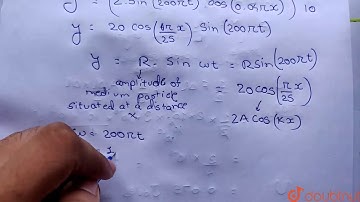 y = (2. sin (200πt) cos (0.04πx)) 10
y = 20 cos(πx/25) . Sin (200πt)
y = R. Sin ωt = R Sin (200πt)
amplitude of = 20 cos(πx/25)
medium particle
situated at a distance 2A cos(kx)
x
ω = 200πt
doubtnut